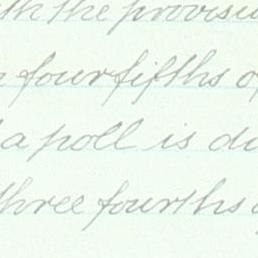 the provisi
four fifths o
a poll is d
three fourths